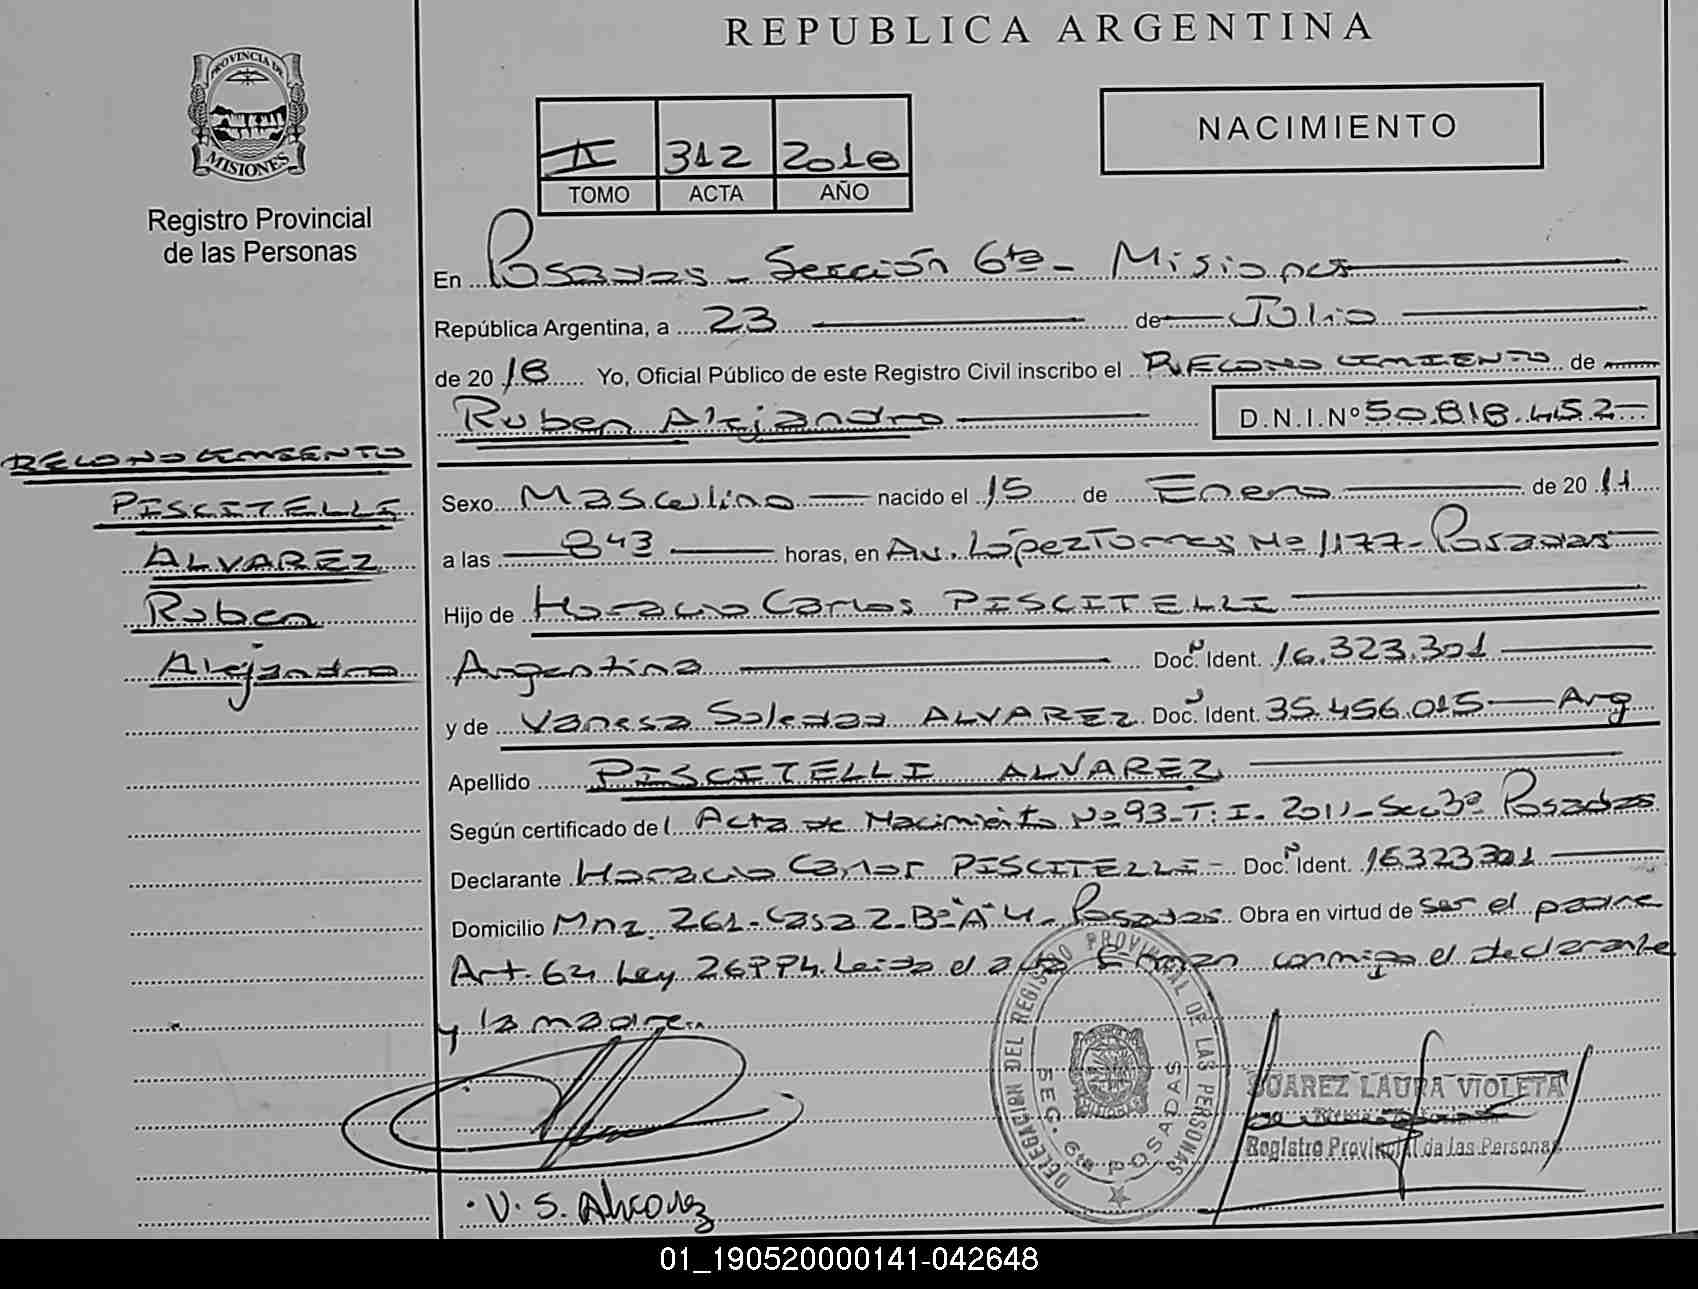 REPUBLICA ARGENTINA
PROVINCIA DE
MISIONES
Registro Provincial
de las Personas
II 312 2018
TOMO ACTA AÑO
NACIMIENTO
En Posadas - Sección 6ta - Misiones
República Argentina, a 23 de Julio
de 2018 Yo, Oficial Público de este Registro Civil inscribo el RECONOCIMIENTO de
Ruben Alejandro D.N.I.Nº 50.818.452-
RECONOCIMIENTO
PISCITELLI
ALVAREZ
Ruben
Alejandro
Sexo Masculino nacido el 15 de Enero de 2011
a las 843 horas, en Av. López Torres Nº 1177- Posadas
Hijo de Horacio Carlos PISCITELLI
Argentina Doc. Ident. 16.323.301
y de Vanesa Soledad ALVAREZ Doc. Ident. 35.456.015 - Arg
Apellido PISCITELLI ALVAREZ
Según certificado del Acta de Nacimiento Nº 93-T: I- 2011- Sec 3ª Posadas
Declarante Horacio Carlos PISCITELLI- Doc. Ident. 16323301
Domicilio Mnz. 261- Casa 2- Bº "A" 4- Posadas Obra en virtud de ser el padre
Art. 64 Ley 26994. Leida el acta firman conmigo el declarante
y la madre.
DELEGACION DEL REGISTRO PROVINCIAL DE LAS PERSONAS
SEC. 6ta POSADAS
SUAREZ LAURA VIOLETA
Registro Provincial de las Personas
V. S. Alvarez
01_190520000141-042648